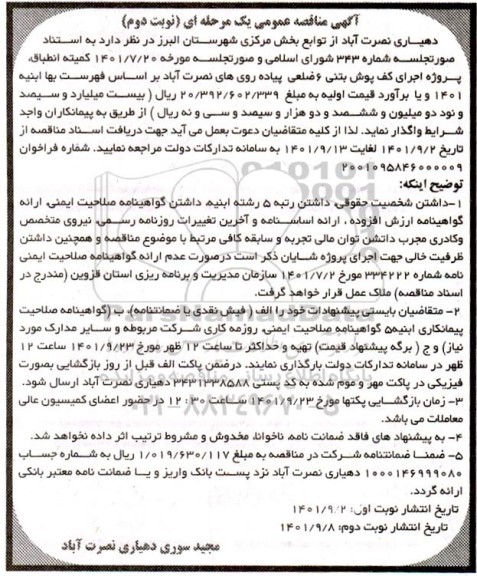 آگهی مناقصه عمومی یک مرحله ای (نوبت دوم)
دهیاری نصرت آباد از توابع بخش مرکزی شهرستان البرز در نظر دارد به استناد
صورتجلسه شماره ۳۴۳ شورای اسلامی و صورتجلسه مورخه ۱۴۰۱/۷/۲۰ کمیته انطباق،
پروژه اجرای کف پوش بتنی ۶ضلعی پیاده روی های نصرت آباد بر اساس فهرست بها ابنیه
۱۴۰۱ و با برآورد قیمت اولیه به مبلغ ۲۰/۳۹۲/۶۰۲/۳۳۹ ریال ( بیست میلیارد و سیصد
و نود دو میلیون و ششصد و دو هزار و سیصد و سی و نه ریال ) از طریق به پیمانکاران واجد
شرایط واگذار نماید. لذا از کلیه متقاضیان دعوت بعمل می آید جهت دریافت اسناد مناقصه از
تاریخ ۱۴۰۱/۹/۲ لغایت ۱۴۰۱/۹/۱۳ به سامانه تدارکات دولت مراجعه نمایید. شماره فراخوان
۲۰۰۱۰۹۵۸۴۶۰۰۰۰۰۹
توضیح اینکه:
۱-داشتن شخصیت حقوقی، داشتن رتبه ۵ رشته ابنیه، داشتن گواهینامه صلاحیت ایمنی، ارائه
گواهینامه ارزش افزوده ، ارائه اساسنامه و آخرین تغییرات روزنامه رسمی، نیروی متخصص
وکادری مجرب داتشن توان مالی تجربه و سابقه کافی مرتبط با موضوع مناقصه و همچنین داشتن
ظرفیت خالی جهت اجرای پروژه شایان ذکر است درصورت عدم ارائه گواهینامه صلاحیت ایمنی
نامه شماره ۳۳۴۲۲۲ مورخ ۱۴۰۱/۷/۲ سازمان مدیریت و برنامه ریزی استان قزوین (مندرج در
اسناد مناقصه) ملاک عمل قرار خواهد گرفت.
۲- متقاضیان بایستی پیشنهادات خود را الف ( فیش نقدی یا ضمانتنامه)، ب (گواهینامه صلاحیت
پیمانکاری ابنیه۵ گواهینامه صلاحیت ایمنی، روزمه کاری شرکت مربوطه و سایر مدارک مورد
نیاز) و ج ( برگه پیشنهاد قیمت) تهیه و حداکثر تا ساعت ۱۲ ظهر مورخ ۱۴۰۱/۹/۲۳ ساعت ۱۲
ظهر در سامانه تدارکات دولت بارگذاری نمایند. درضمن پاکت الف قبل از روز بازگشایی بصورت
فیزیکی در پاکت مهر و موم شده به کد پستی ۳۴۳۱۳۳۸۵۸۸ دهیاری نصرت آباد ارسال شود.
۳- زمان بازگشایی پکتها مورخ ۱۴۰۱/۹/۲۳ ساعت ۱۲:۳۰ در حضور اعضای کمیسیون عالی
معاملات می باشد.
۴- به پیشنهاد های فاقد ضمانت نامه، ناخوانا، مخدوش و مشروط ترتیب اثر داده نخواهد شد.
۵- ضمنا ضمانتنامه شرکت در مناقصه به مبلغ ۱/۰۱۹/۶۳۰/۱۱۷ ریال به شماره حساب
۱۰۰۰۱۴۶۹۹۹۰۸۰ دهیاری نصرت آباد نزد پست بانک واریز و یا ضمانت نامه معتبر بانکی
ارائه گردد.
تاریخ انتشار نوبت اول: ۱۴۰۱/۹/۲
تاریخ انتشار نوبت دوم: ۱۴۰۱/۹/۸
مجید سوری دهیاری نصرت آباد